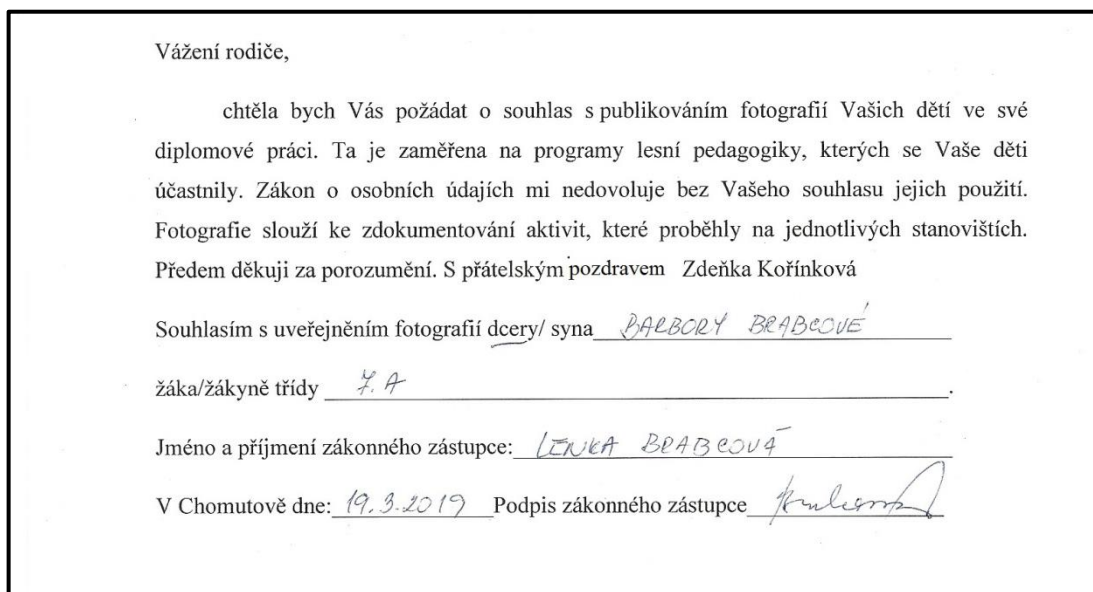 Vážení rodiče,
chtěla bych Vás požádat o souhlas s publikováním fotografií Vašich dětí ve své
diplomové práci. Ta je zaměřena na programy lesní pedagogiky, kterých se Vaše děti
účastnily. Zákon o osobních údajích mi nedovoluje bez Vašeho souhlasu jejich použití.
Fotografie slouží ke zdokumentování aktivit, které proběhly na jednotlivých stanovištích.
Předem děkuji za porozumění. S přátelským pozdravem Zdeňka Kořínková
Souhlasím s uveřejněním fotografií dcery/ syna BARBORY BRABCOVÉ
žáka/žákyně třídy 7. A.
Jméno a příjmení zákonného zástupce: LENKA BRABCOVÁ
V Chomutově dne: 19.3.2019 Podpis zákonného zástupce